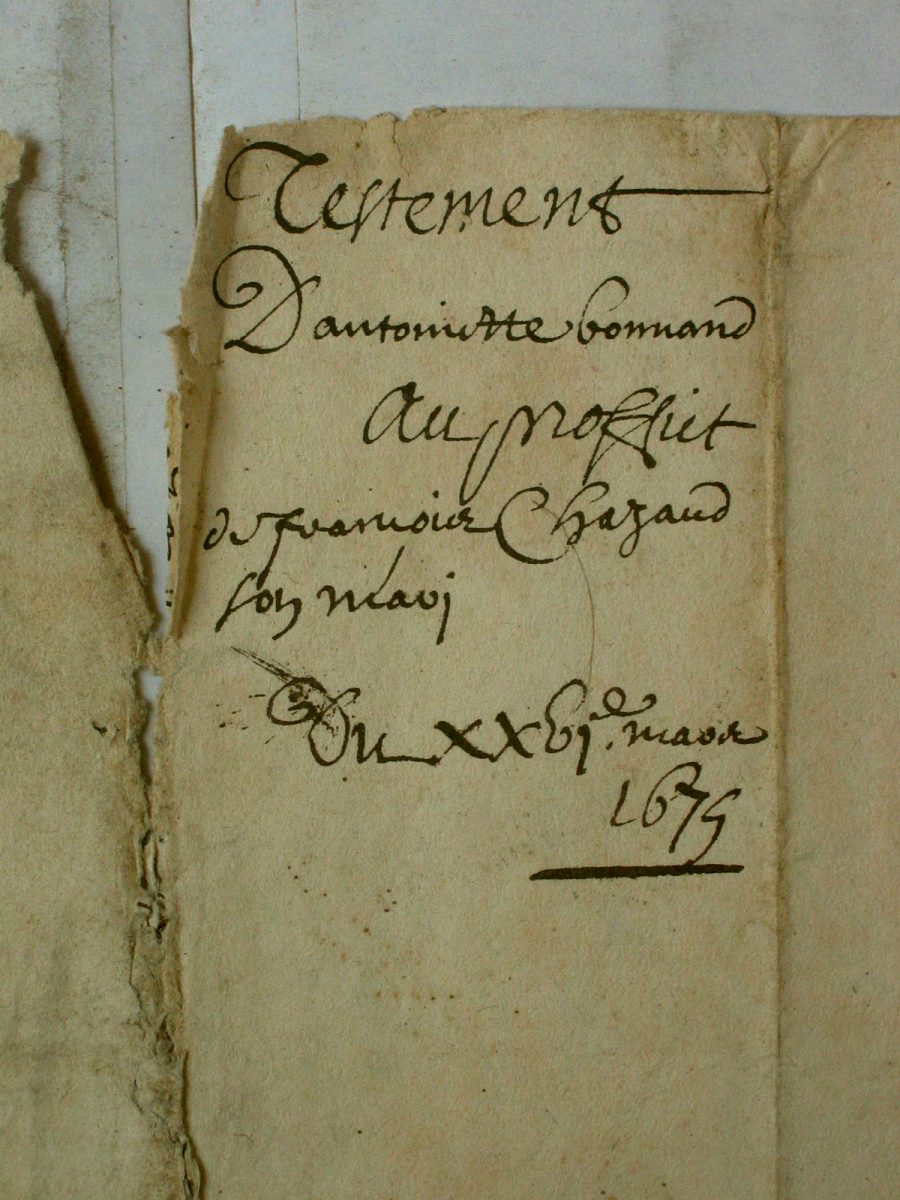 Testement
D'antoinette bonnand
Au proffict
de francois Chazaud
son mari
Du XXVI.e mars
1675